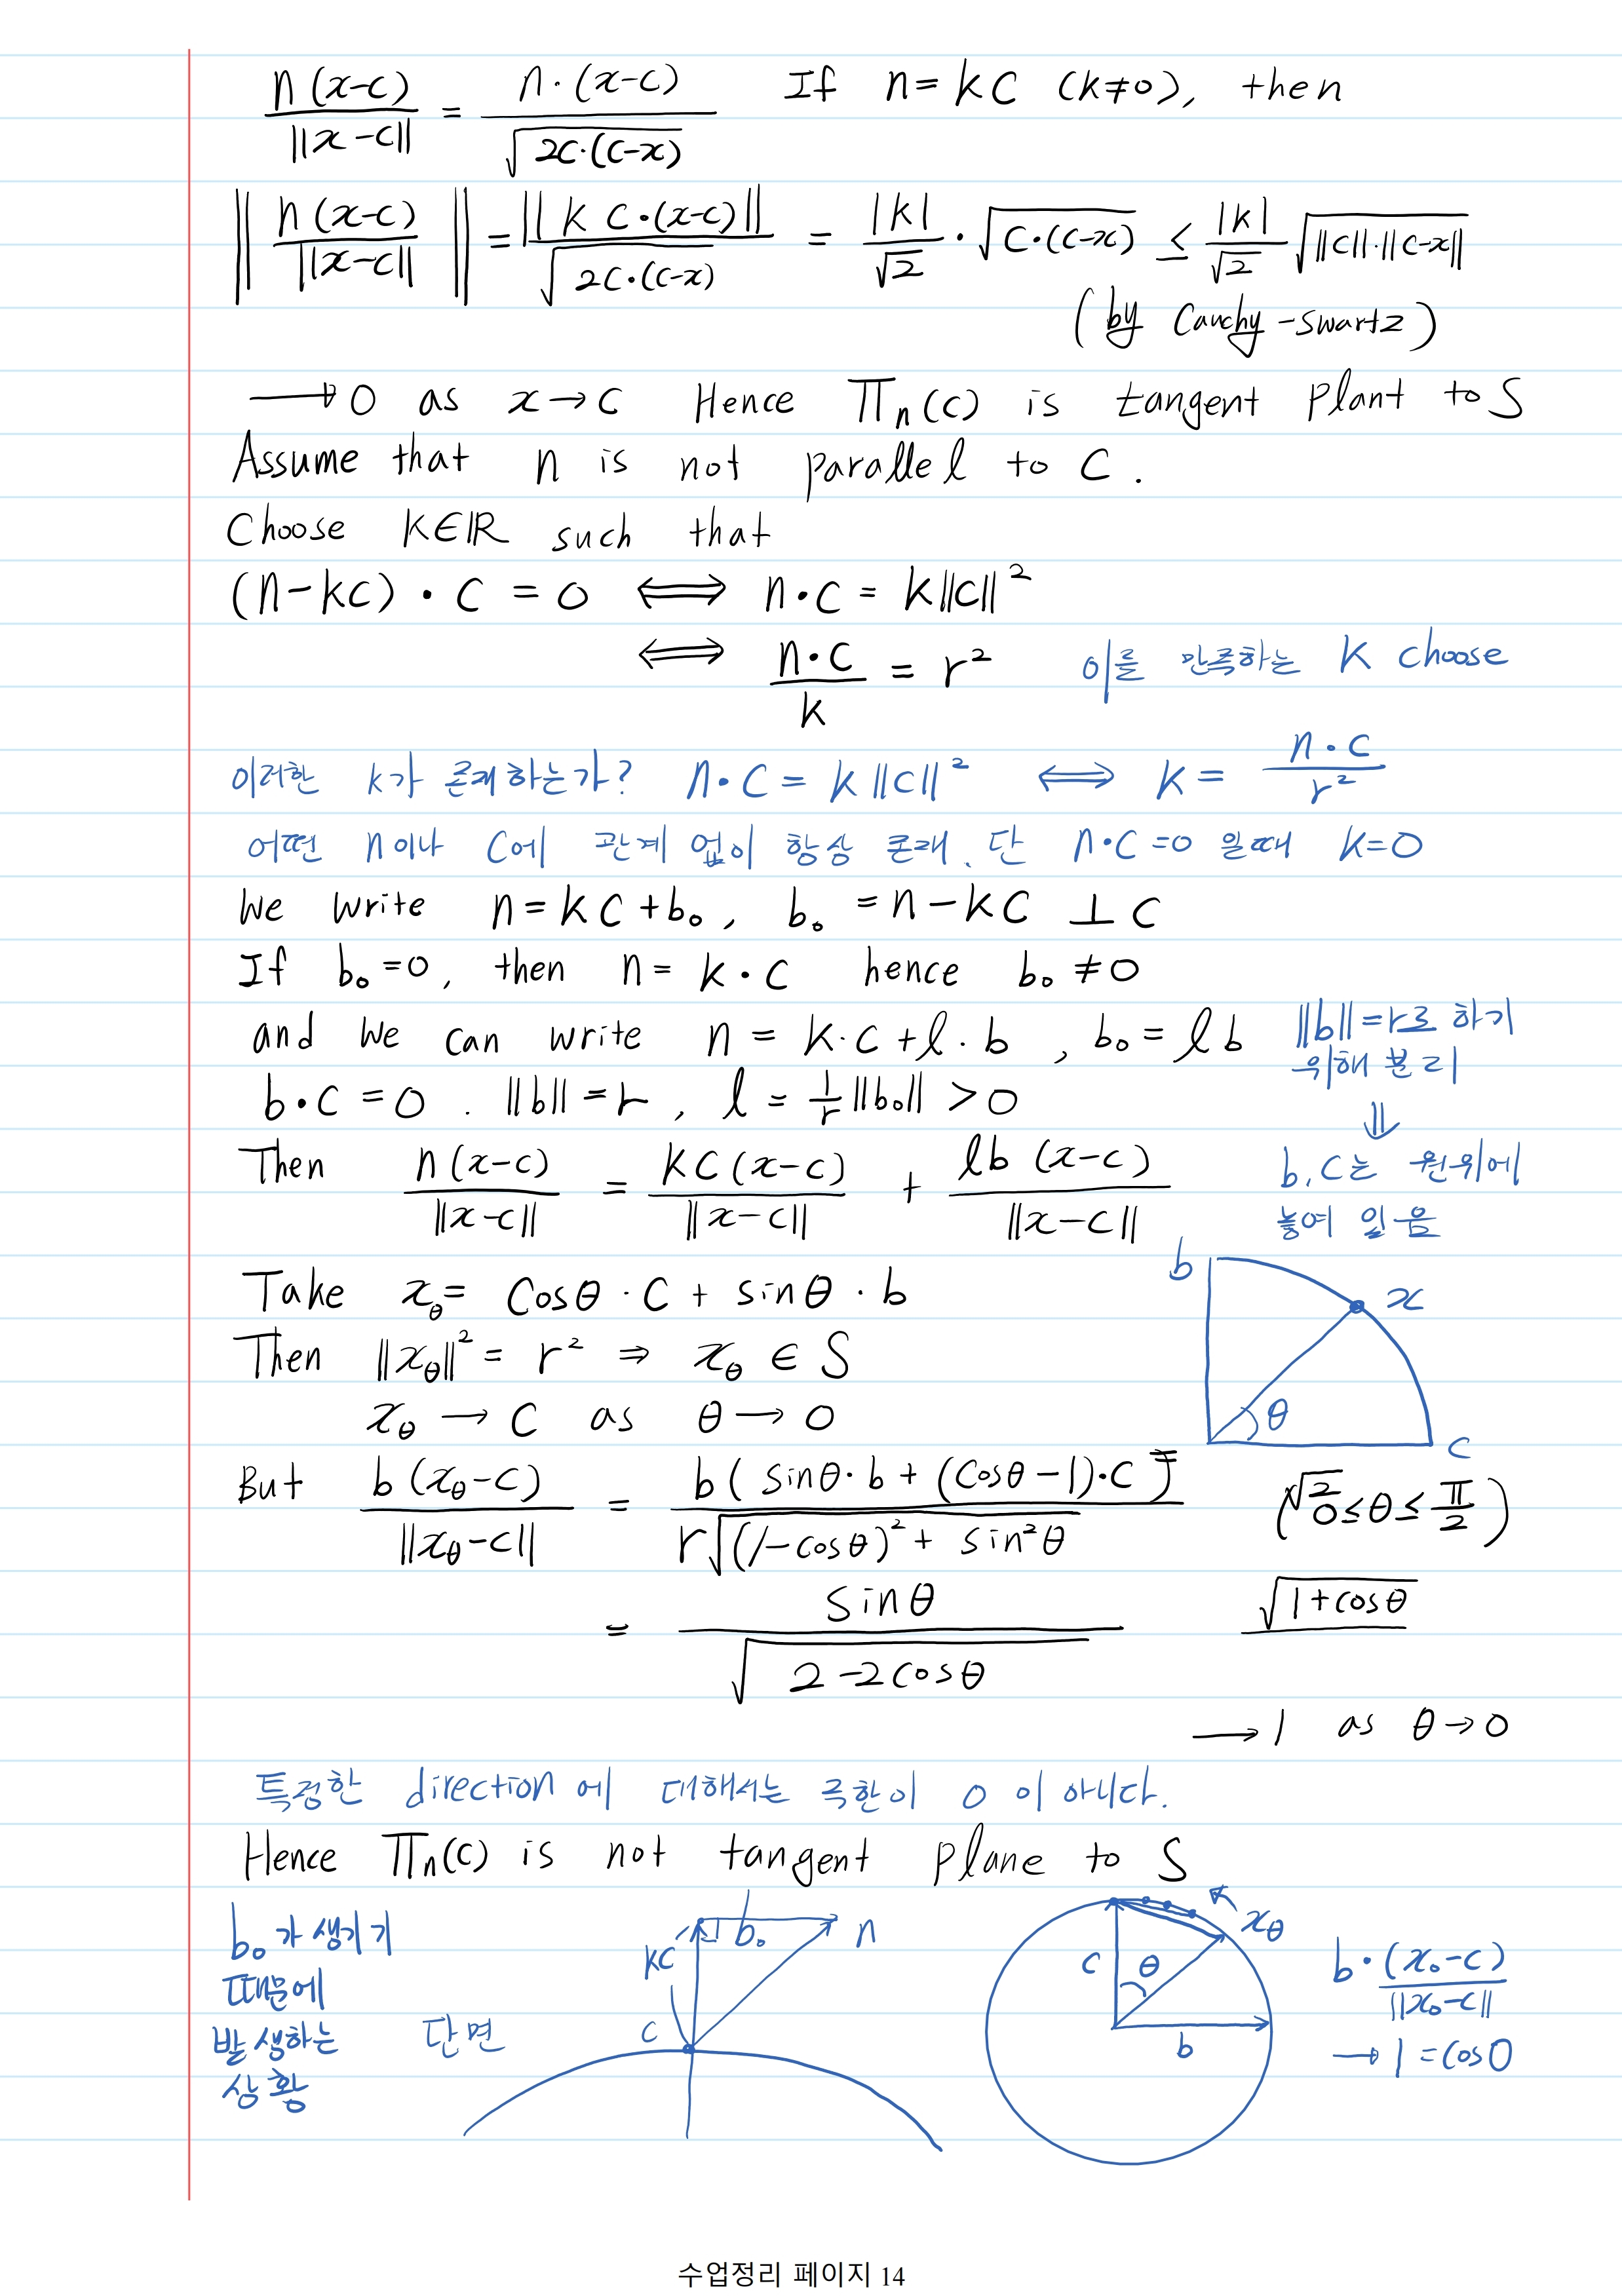 n(x-c) / ||x-c|| = n·(x-c) / √(2c·(c-x))   If n = kc (k≠0), then
|| n(x-c) / ||x-c|| || = || k c·(x-c) || / √(2c·(c-x)) = |k|/√2 · √(c·(c-x)) ≤ |k|/√2 √(||c||·||c-x||)
(by Cauchy-swartz)
→ 0 as x→c Hence Πn(c) is tangent plant to S
Assume that n is not parallel to C.
Choose K∈ℝ such that
(n-kc)·c = 0 ⟺ n·c = k||c||²
⟺ n·c / k = r² 이를 만족하는 K choose
이러한 k가 존재하는가? n·c = k||c||² ⟺ K = n·c / r²
어떤 n이나 C에 관계 없이 항상 존재. 단 n·c=0 일때 k=0
We write n = kc + b₀, b₀ = n - kc ⊥ c
If b₀=0, then n = k·c hence b₀ ≠ 0
and we can write n = k·c + l·b, b₀ = lb ||b||=r로 하기
위해 분리
b·c = 0. ||b|| = r, l = 1/r ||b₀|| > 0
⇓
Then n(x-c) / ||x-c|| = kc(x-c) / ||x-c|| + lb(x-c) / ||x-c||
b, c는 원위에
놓여 있음
Take xθ = cosθ·c + sinθ·b
b x θ c
Then ||xθ||² = r² ⇒ xθ ∈ S
xθ → c as θ → 0
But b(xθ-c) / ||xθ-c|| = b(sinθ·b + (cosθ-1)·c) / r√((1-cosθ)² + sin²θ) (0≤θ≤π/2)
= sinθ / √(2-2cosθ) √(1+cosθ) / √2
→ 1 as θ→0
특정한 direction에 대해서는 극한이 0이 아니다.
Hence Πn(c) is not tangent plane to S
b₀가 생기기
때문에
발생하는
상황
단면
kc b₀ n
c
c θ xθ
b
b·(x₀-c) / ||x₀-c||
→ 1 = cos0
수업정리 페이지 14